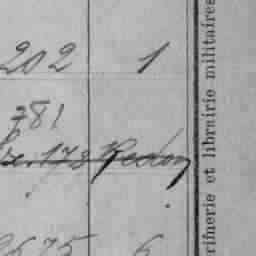 202 1
781
173 Redon
2675 6
rimerie et librairie militaires